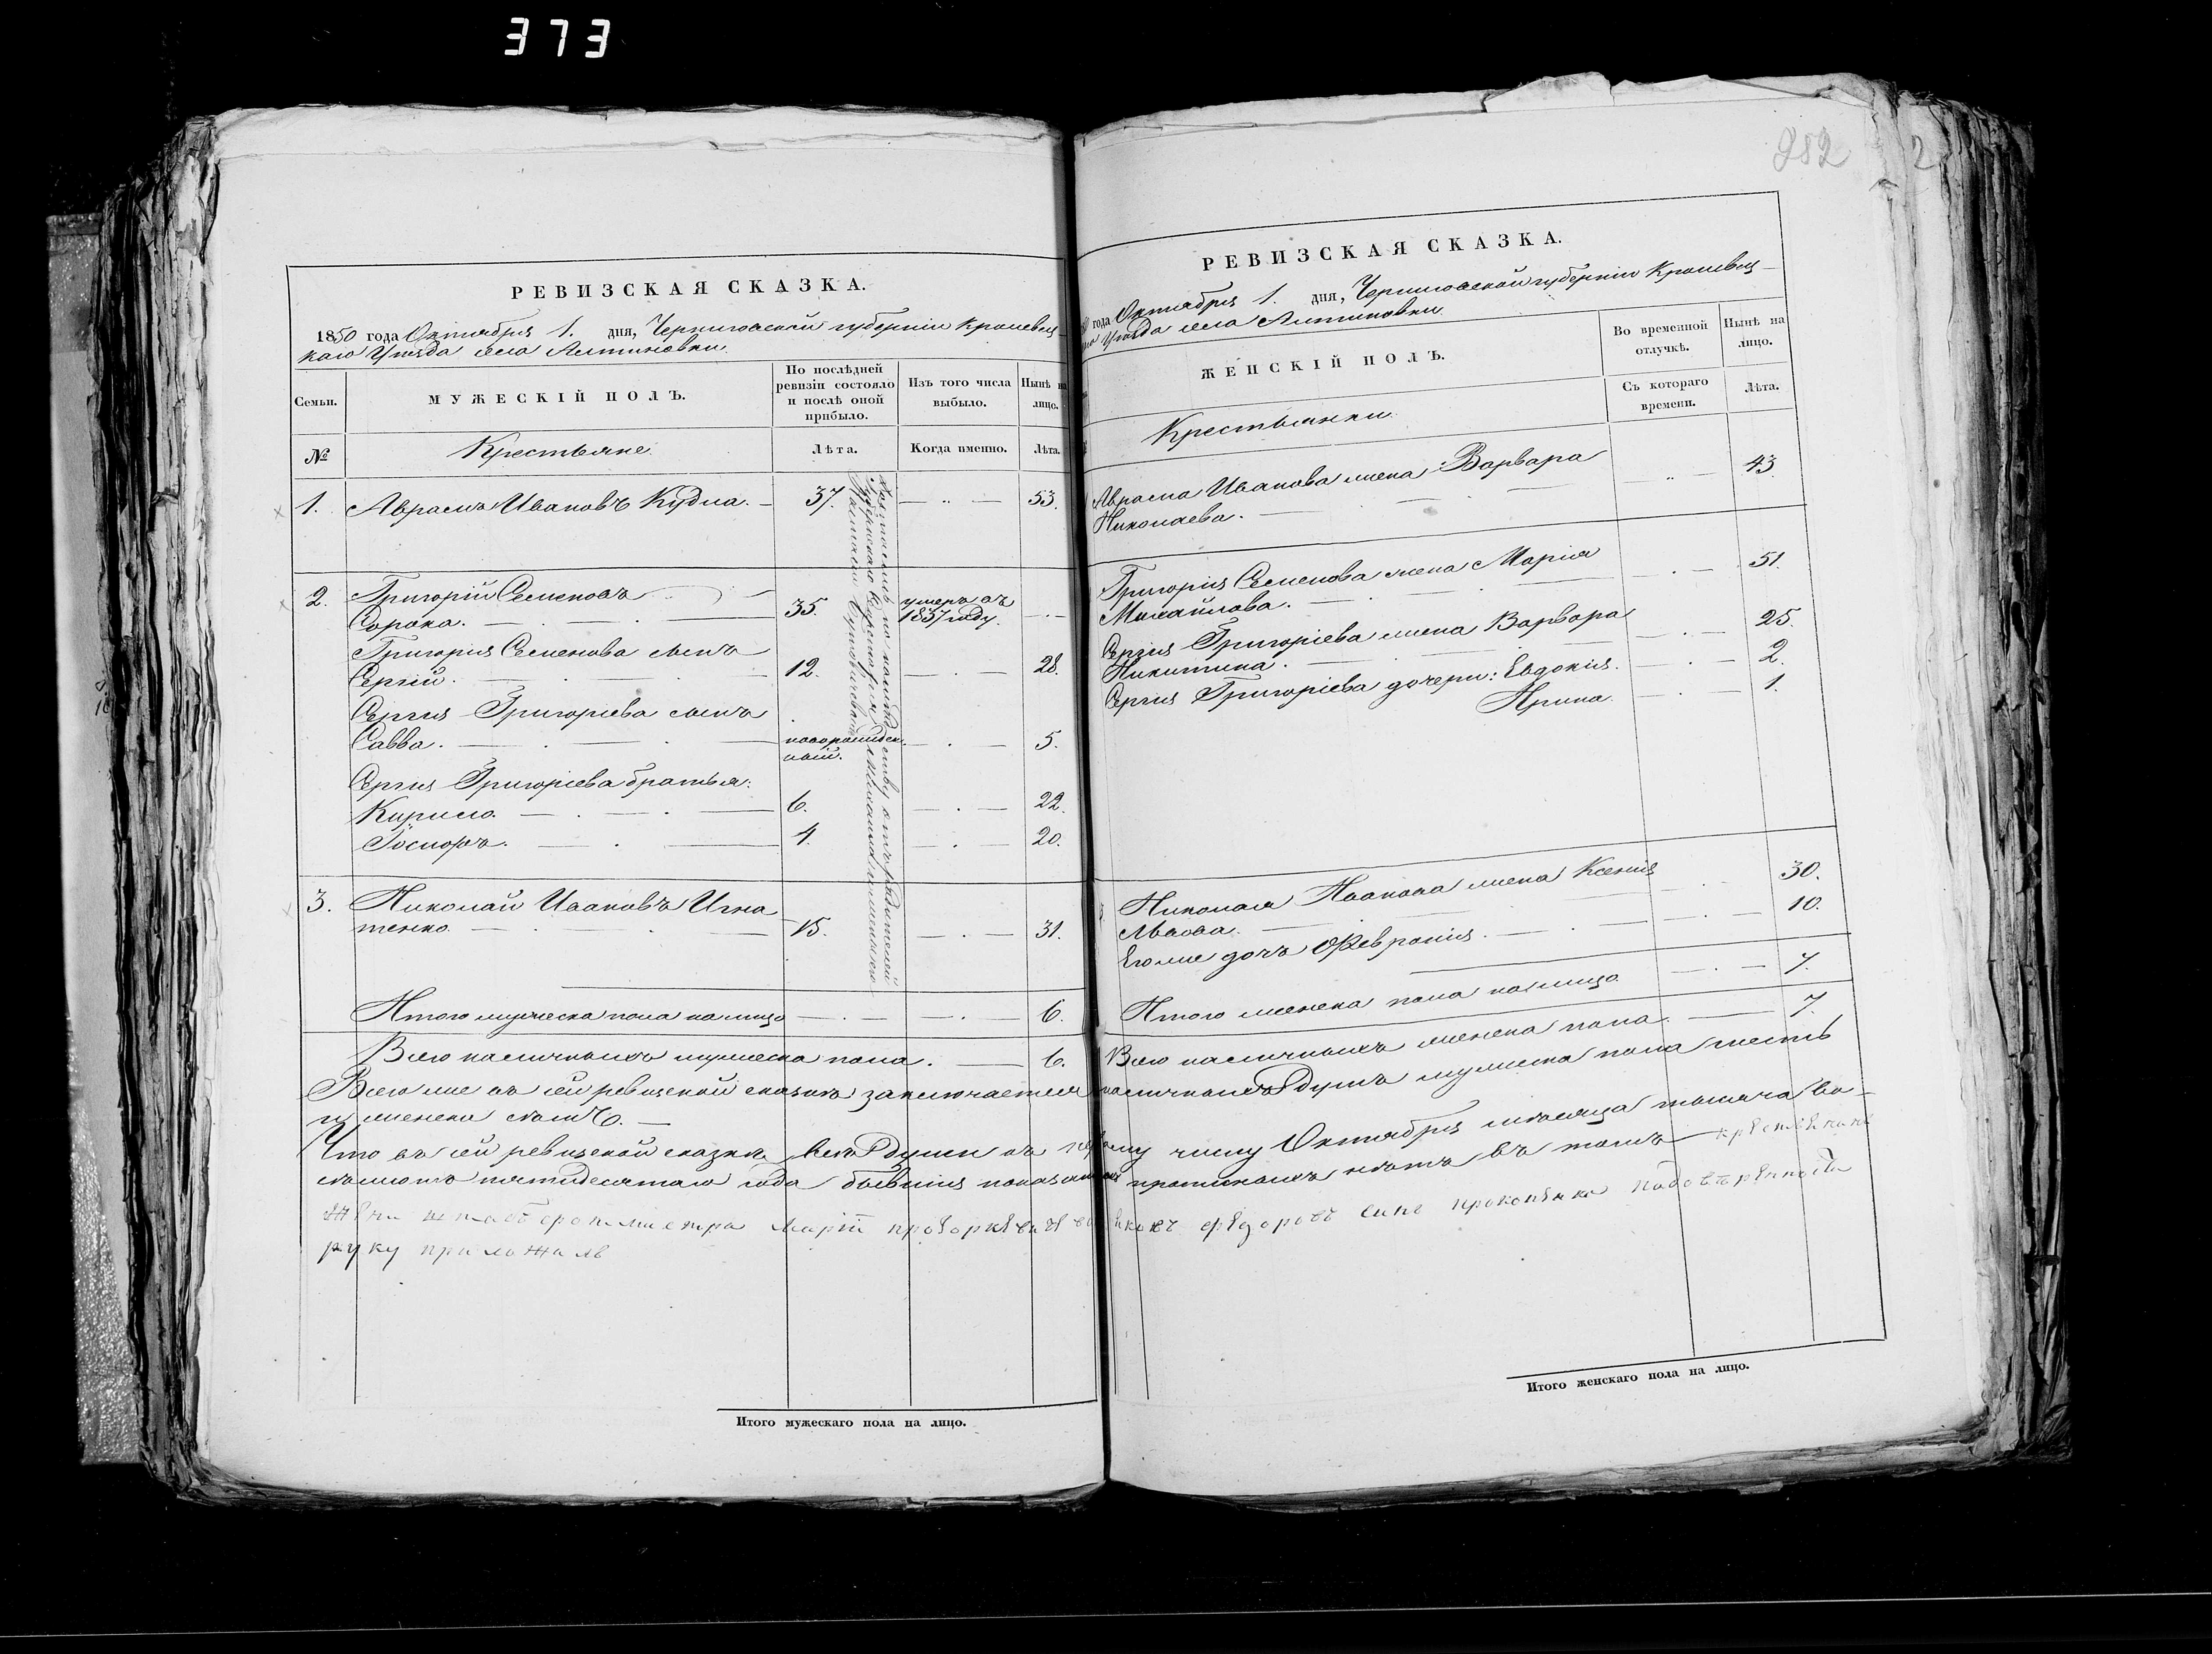 373
282
2
РЕВИЗСКАЯ СКАЗКА.
1850 года Октября 1. дня, Черниговской губерніи Кролевец-
каго Уѣзда села Алтиновки.
Семьи.
МУЖЕСКІЙ ПОЛЪ.
По послѣдней ревизіи состояло и послѣ оной прибыло.
Изъ того числа выбыло.
Нынѣ на лицо.
№
Крестьяне
Лѣта.
Когда именно.
Лѣта.
1. Аврамъ Ивановъ Кудла. — 37. — „ — 53.
2. Григорій Семеновъ
Сорока. — 35. умеръ въ 1837 году. — . —
Григорія Семенова сынъ
Сергій. — 12. — . — 28.
Сергія Григоріева сынъ
Савва. — новорожден-ный. — . — 5.
Сергія Григоріева братья:
Кирило. — 6. — . — 22.
Госифъ. — 4. — . — 20.
3. Николай Ивановъ Игна
тенко. — 15. — . — 31.
Итого мужеска пола на лицо — . — — . — 6.
Всего наличныхъ мужеска пола. — 6.
РЕВИЗСКАЯ СКАЗКА.
года Октября 1. дня, Черниговской губерніи Кролевец-
Уѣзда села Алтиновки
ЖЕНСКІЙ ПОЛЪ.
Во временной отлучкѣ.
Нынѣ на лицо.
Крестьянки.
Съ котораго времени.
Лѣта.
Аврама Иванова жена Варвара
Николаева. — „ — 43.
Григорія Семенова жена Марія
Михайлова. — . — 51.
Сергія Григоріева жена Варвара
Никитина. — . — 25.
Сергія Григоріева дочери: Евдокія. — . — 2.
Ирина. — . — 1.
Николая Иванова жена Ксенія
Львова. — . — 30.
Его же дочь Февронія. — . — 10.
Итого женска пола на лицо — . — 7.
Всего наличныхъ женска пола. — 7.
Всего же въ сей ревизской сказкѣ заключается наличныхъ душъ мужеска пола шесть
и женска семь. —
Что въ сей ревизской сказкѣ все души къ первому числу Октября мѣсяца тысяча во-
семьсотъ пятидесятаго года бывшія показаны и прописныхъ нѣтъ въ томъ
руку приложилъ
Итого мужескаго пола на лицо.
Итого женскаго пола на лицо.